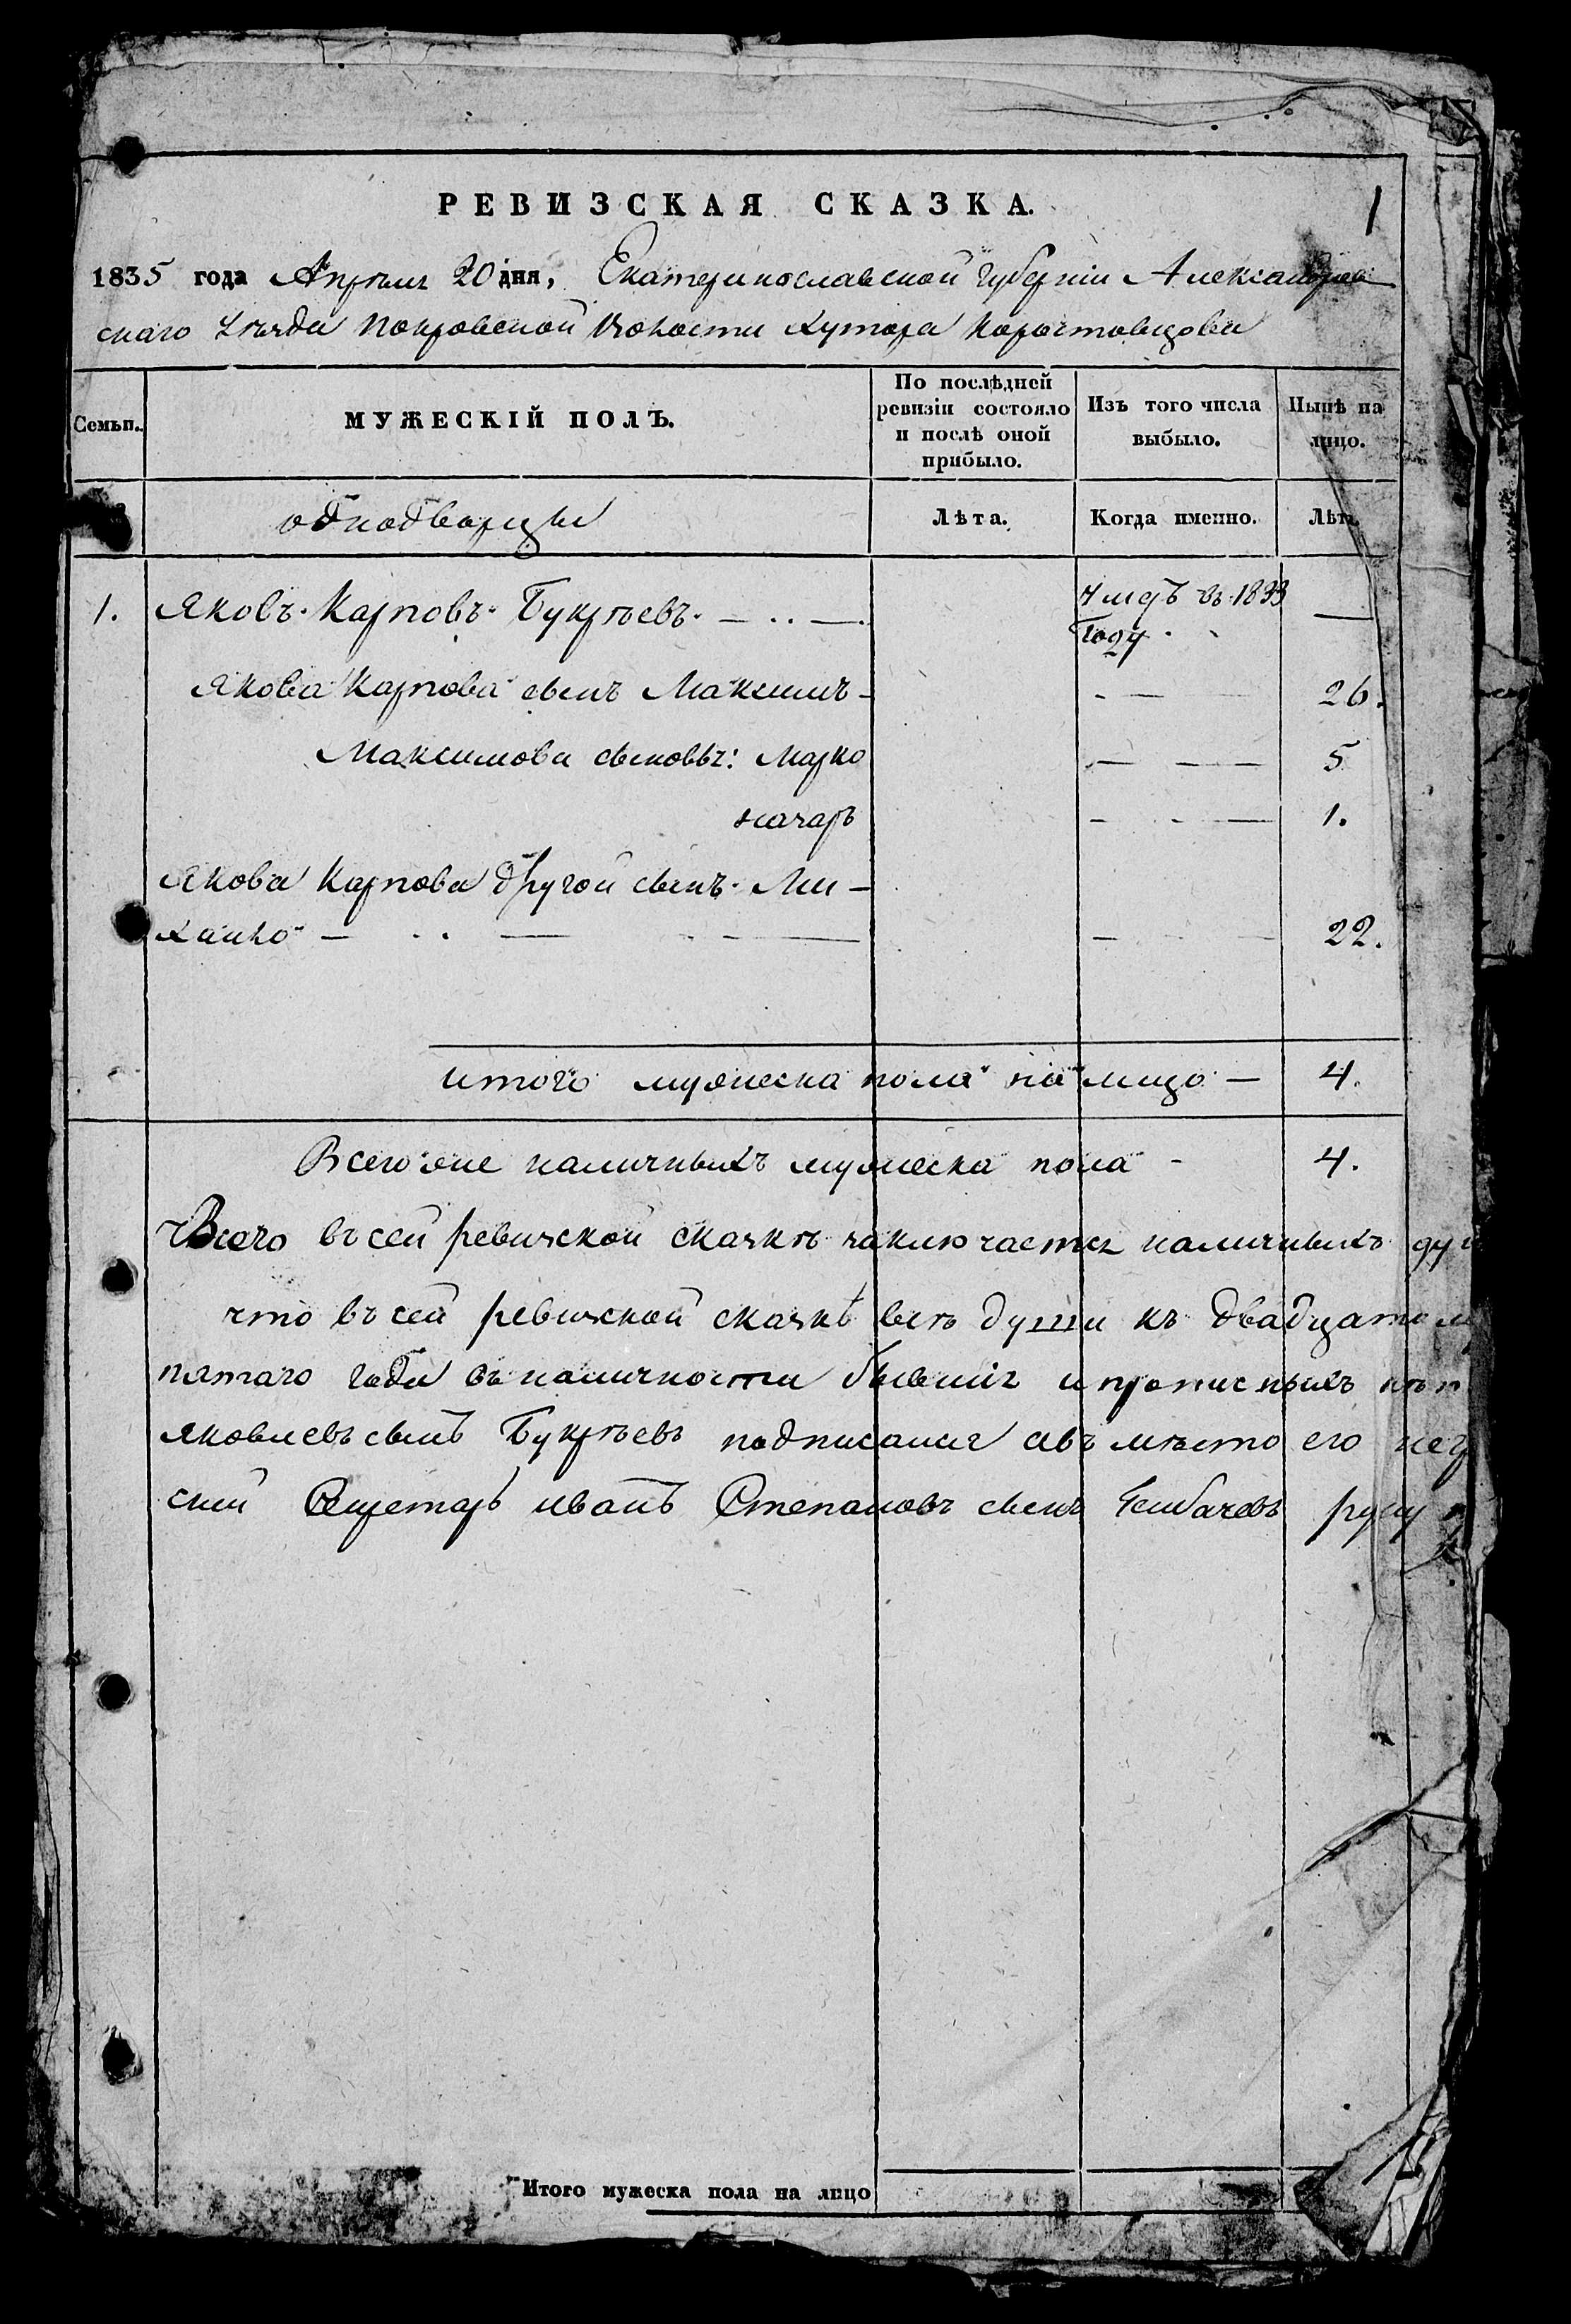 РЕВИЗСКАЯ СКАЗКА.
1
1835 года Апреля 20 дня, Екатеринославской губернiи Александров
скаго уезда Покровской волости хутора Коростовцова
Семьи.
МУЖЕСКIЙ ПОЛЪ.
По послѣдней ревизiи состояло и послѣ оной прибыло.
Изъ того числа выбыло.
Нынѣ на лицо.
однодворцы
Лѣта.
Когда именно.
Лѣта
1. Яковъ Карповъ Букрѣевъ
умеръ въ 1833
году
Якова Карпова сынъ Максимъ 26.
Максимова сыновьѣ: Марко 5
1.
Якова Карпова другой сынъ Ми-
хайло 22.
итого мужеска пола на лицо 4.
Всего же наличныхъ мужеска пола 4.
Всего въ сей ревизской сказкѣ заключается наличныхъ душ
что въ сей ревизской сказкѣ всѣ души къ двадцатом
пятаго года въ наличности бывшiя и прописныхъ нѣт
Яковлевъ сынъ Букрѣевъ подписался авъ мѣсто его
ский Иванъ Степановъ сынъ руку
Итого мужеска пола на лицо